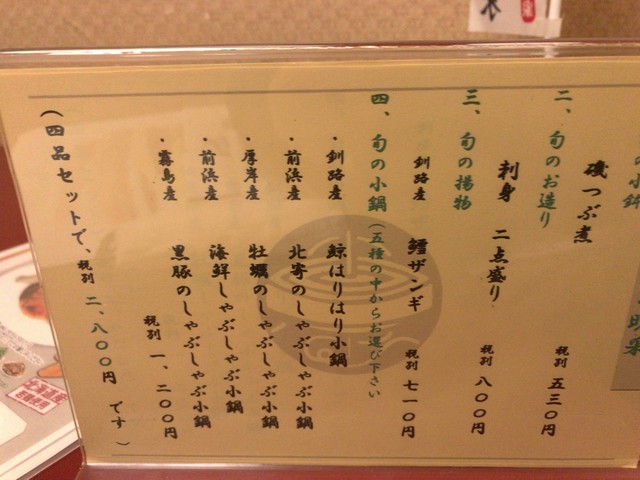 の小鉢
磯つぶ煮
税別 五三〇円
二、旬のお造り
刺身 二点盛り
税別 八〇〇円
三、旬の揚物
釧路産 鱈ザンギ
税別 七一〇円
四、旬の小鍋(五種の中からお選び下さい
・釧路産 鯨はりはり小鍋
・前浜産 北寄のしゃぶしゃぶ小鍋
・厚岸産 牡蠣のしゃぶしゃぶ小鍋
・前浜産 海鮮しゃぶしゃぶ小鍋
・霧島産 黒豚のしゃぶしゃぶ小鍋
税別 一、二〇〇円
(四品セットで、税別 二、八〇〇円 です)